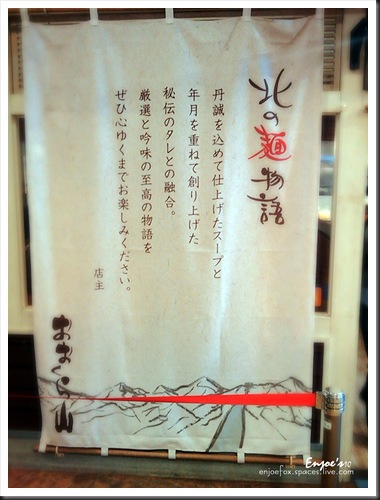 北の麺物語
丹誠を込めて仕上げたスープと
年月を重ねて創り上げた
秘伝のタレとの融合。
厳選と吟味の至高の物語を
ぜひ心ゆくまでお楽しみください。
店主
おおくら山
Enjoe's
enjoefox.spaces.live.com